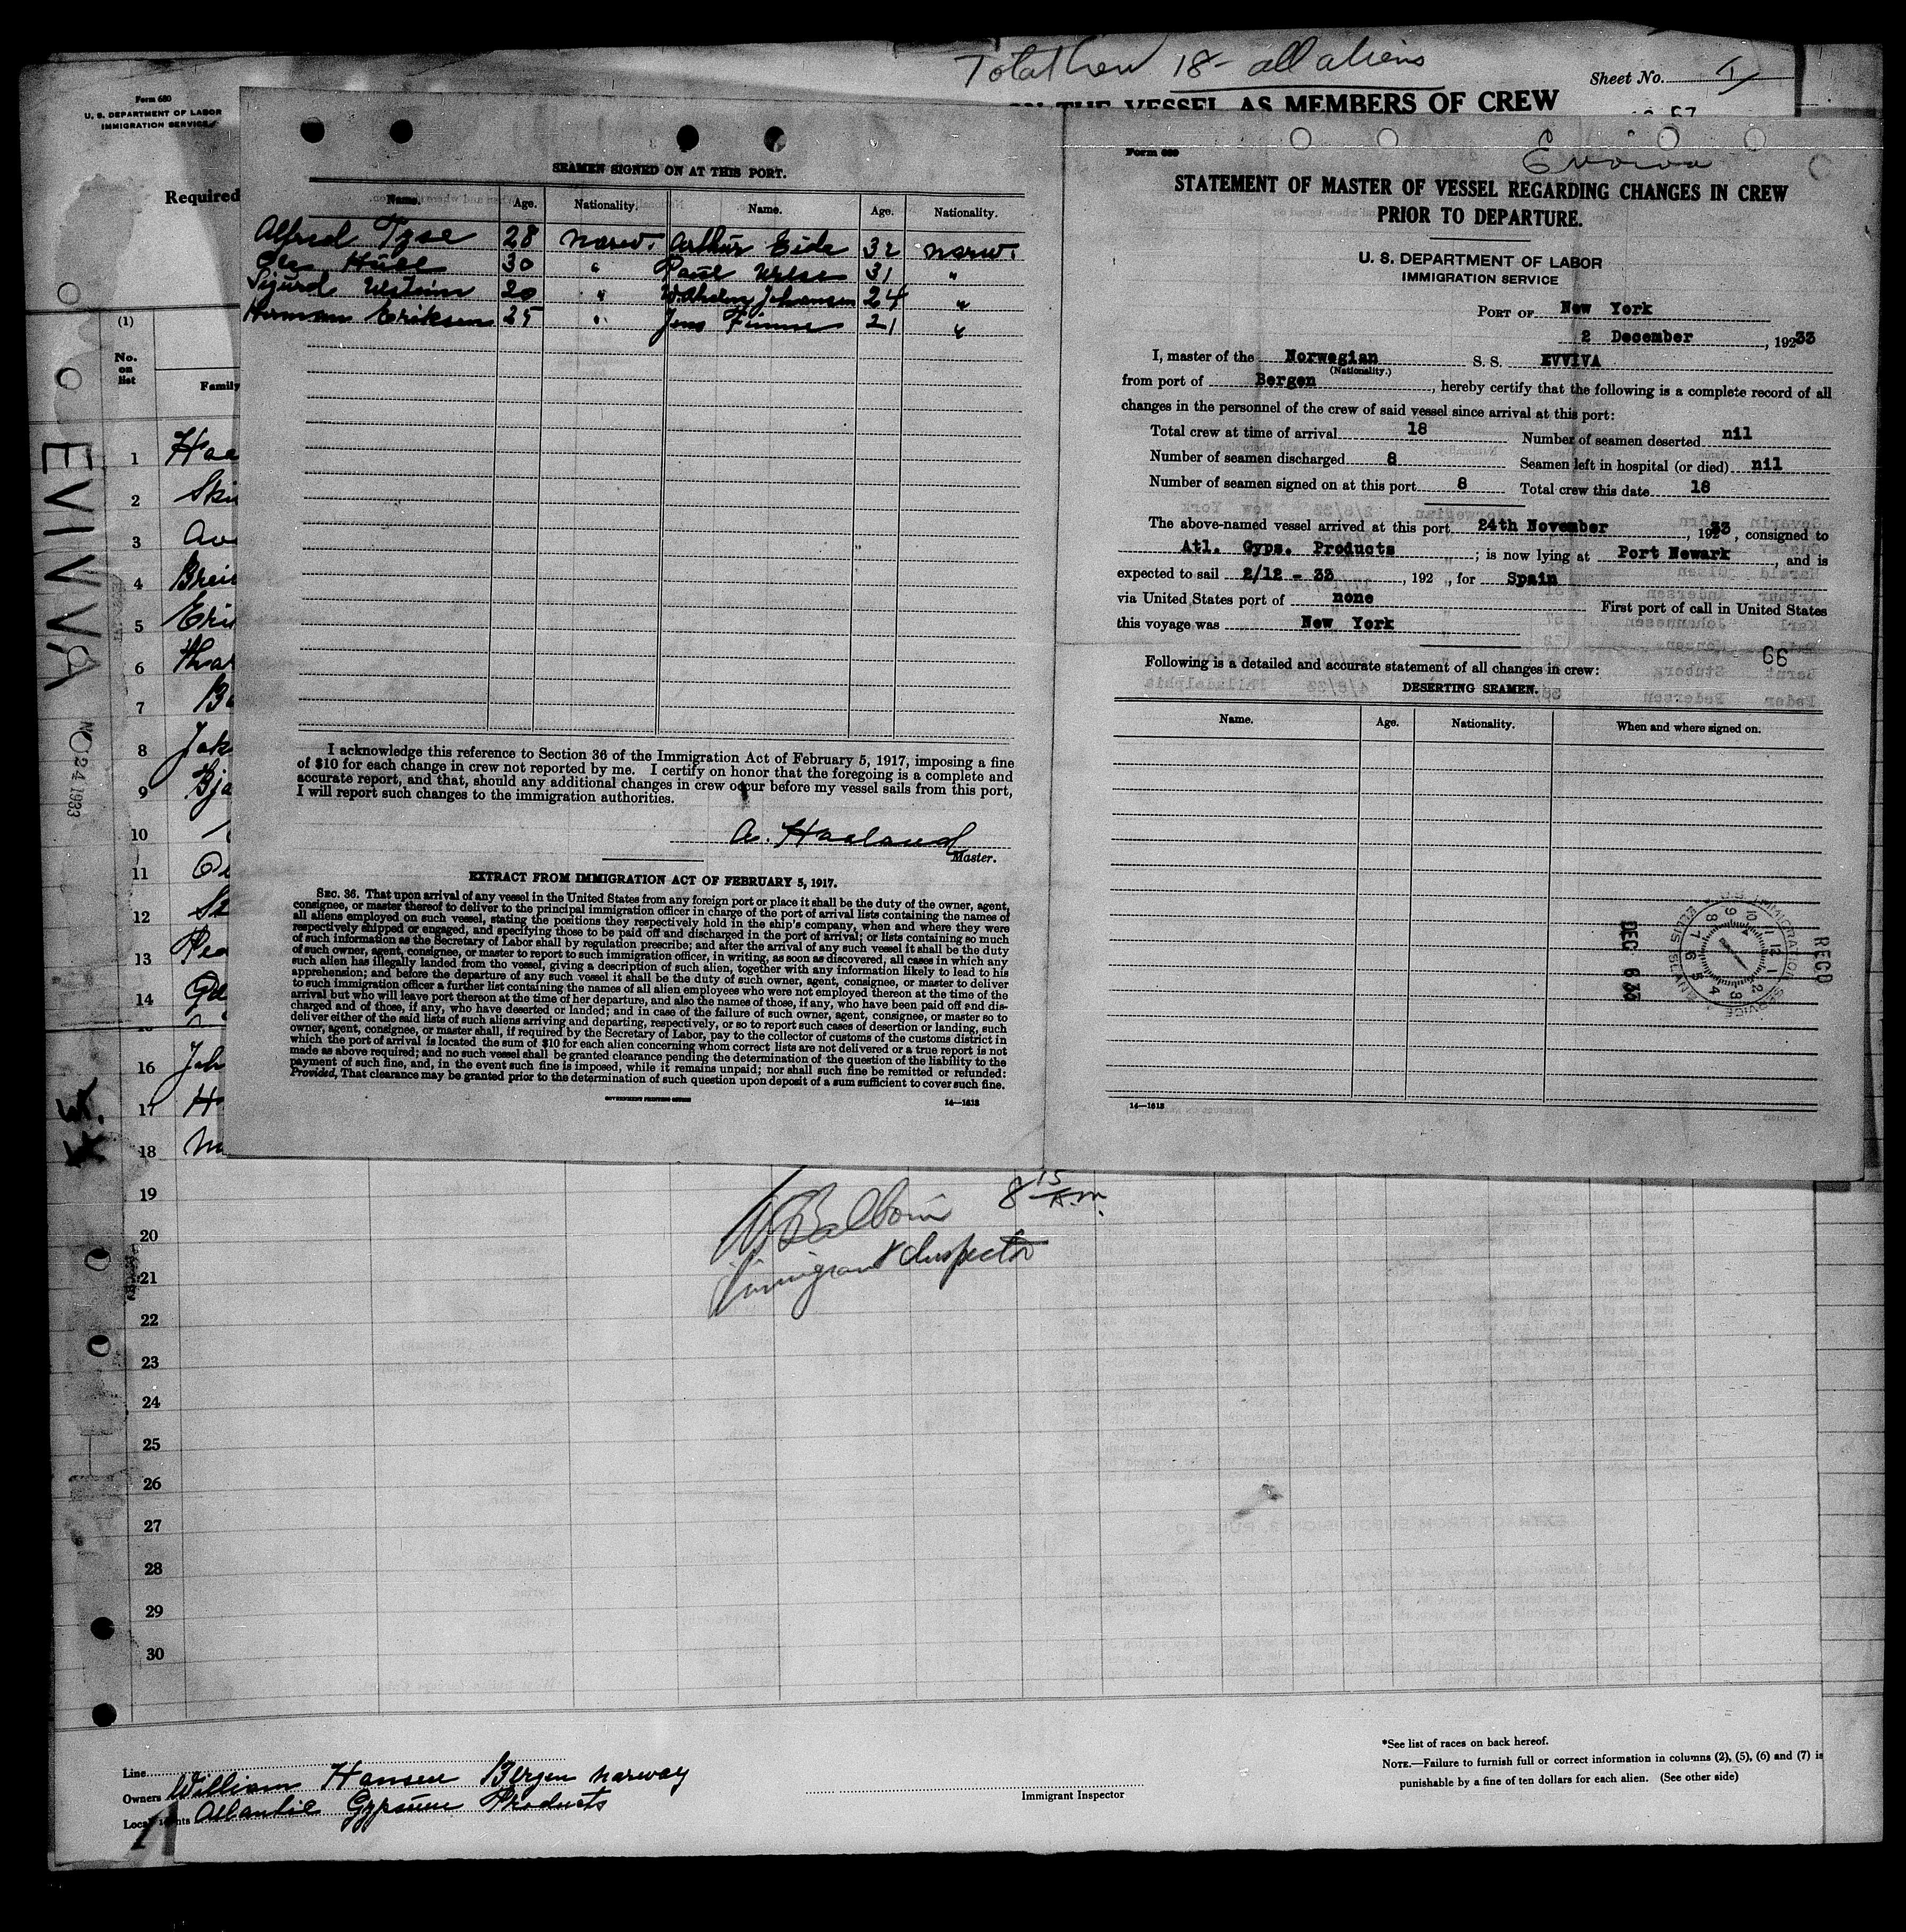 Total Crew 18 - all aliens
Sheet No. 1
Form 680
U. S. DEPARTMENT OF LABOR
IMMIGRATION SERVICE
ON THE VESSEL AS MEMBERS OF CREW
Required
(1)
No. on list
Family
EVIVVA
NO 24 1933
1 Haa
2 Ski
3
4 Brei
5 Eri
6 Thor
7 B
8 Jak
9 Bja
10
11
12
13
14
16 Joh
17 H
18
19
20
21
22
23
24
25
26
27
28
29
30
SEAMEN SIGNED ON AT THIS PORT.
Name. Age. Nationality. Name. Age. Nationality.
Alfred Tyse 28 Norw. Arthur Eide 32 Norw.
30 " Paul 31 "
Sigurd 20 " Johansen 24 "
Herman Eriksen 25 " Jens 21 "
I acknowledge this reference to Section 36 of the Immigration Act of February 5, 1917, imposing a fine
of $10 for each change in crew not reported by me. I certify on honor that the foregoing is a complete and
accurate report, and that, should any additional changes in crew occur before my vessel sails from this port,
I will report such changes to the immigration authorities.
A. Haaland
Master.
EXTRACT FROM IMMIGRATION ACT OF FEBRUARY 5, 1917.
SEC. 36. That upon arrival of any vessel in the United States from any foreign port or place it shall be the duty of the owner, agent,
consignee, or master thereof to deliver to the principal immigration officer in charge of the port of arrival lists containing the names of
all aliens employed on such vessel, stating the positions they respectively hold in the ship's company, when and where they were
respectively shipped or engaged, and specifying those to be paid off and discharged in the port of arrival; or lists containing so much
of such information as the Secretary of Labor shall by regulation prescribe; and after the arrival of any such vessel it shall be the duty
of such owner, agent, consignee, or master to report to such immigration officer, in writing, as soon as discovered, all cases in which any
such alien has illegally landed from the vessel, giving a description of such alien, together with any information likely to lead to his
apprehension; and before the departure of any such vessel it shall be the duty of such owner, agent, consignee, or master to deliver
to such immigration officer a further list containing the names of all alien employees who were not employed thereon at the time of the
arrival but who will leave port thereon at the time of her departure, and also the names of those, if any, who have been paid off and dis-
charged and of those, if any, who have deserted or landed; and in case of the failure of such owner, agent, consignee, or master so to
deliver either of the said lists of such aliens arriving and departing, respectively, or so to report such cases of desertion or landing, such
owner, agent, consignee, or master shall, if required by the Secretary of Labor, pay to the collector of customs of the customs district in
which the port of arrival is located the sum of $10 for each alien concerning whom correct lists are not delivered or a true report is not
made as above required; and no such vessel shall be granted clearance pending the determination of the question of the liability to the
payment of such fine, and, in the event such fine is imposed, while it remains unpaid; nor shall such fine be remitted or refunded:
Provided, That clearance may be granted prior to the determination of such question upon deposit of a sum sufficient to cover such fine.
GOVERNMENT PRINTING OFFICE 14—1613
Form 689
Evviva
STATEMENT OF MASTER OF VESSEL REGARDING CHANGES IN CREW
PRIOR TO DEPARTURE.
U. S. DEPARTMENT OF LABOR
IMMIGRATION SERVICE
PORT OF New York
2 December, 19233
I, master of the Norwegian S. S. EVVIVA
(Nationality.)
from port of Bergen, hereby certify that the following is a complete record of all
changes in the personnel of the crew of said vessel since arrival at this port:
Total crew at time of arrival 18 Number of seamen deserted nil
Number of seamen discharged 8 Seamen left in hospital (or died) nil
Number of seamen signed on at this port 8 Total crew this date 18
The above-named vessel arrived at this port 24th November, 19233, consigned to
Atl. Gyps. Products; is now lying at Port Newark, and is
expected to sail 2/12 - 33, 192 , for Spain
via United States port of none First port of call in United States
this voyage was New York
66
Following is a detailed and accurate statement of all changes in crew:
DESERTING SEAMEN.
Name. Age. Nationality. When and where signed on.
RECD
DEC 6 33
U.S. IMMIGRATION SERVICE ELLIS ISLAND N.Y.
14—1613
8 15 A.m.
Immigrant Inspector
Line
Owners William Hansen Bergen Norway
Local Agents Atlantic Gypsum Products
Immigrant Inspector
*See list of races on back hereof.
NOTE.—Failure to furnish full or correct information in columns (2), (5), (6) and (7) is
punishable by a fine of ten dollars for each alien. (See other side)